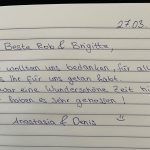 27.03.
Beste Bob & Brigitte,
wollten uns bedanken, für all
Ihr für uns getan habt.
war eine wunderschöne Zeit hi
haben es sehr genossen!
Anastasia & Denis